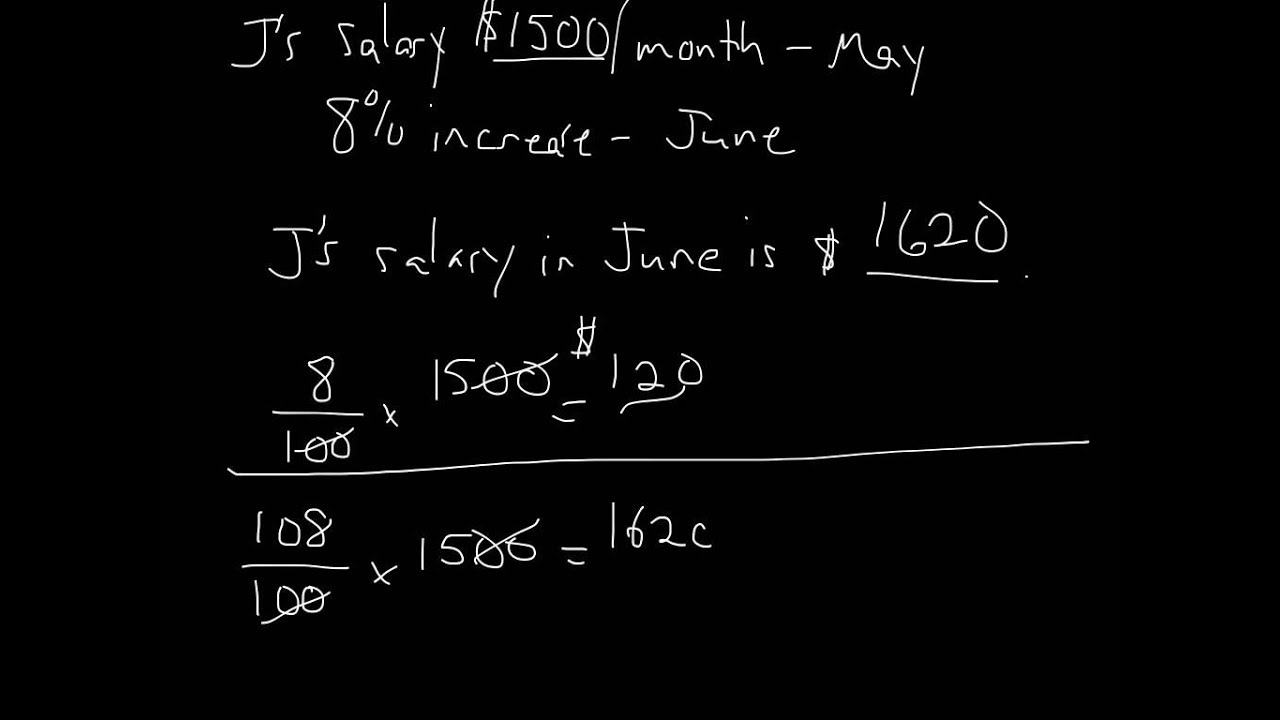 J's salary $1500/month - May
8% increase - June
J's salary in June is $ 1620.
8/100 × 1500 = $120
108/100 × 1500 = 162c